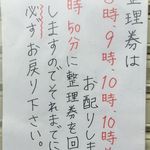 整理券は
時、9時、10時、10時
お配りしま
時50分に整理券を回
しますのでそれまでに
必ずお戻り下さい。